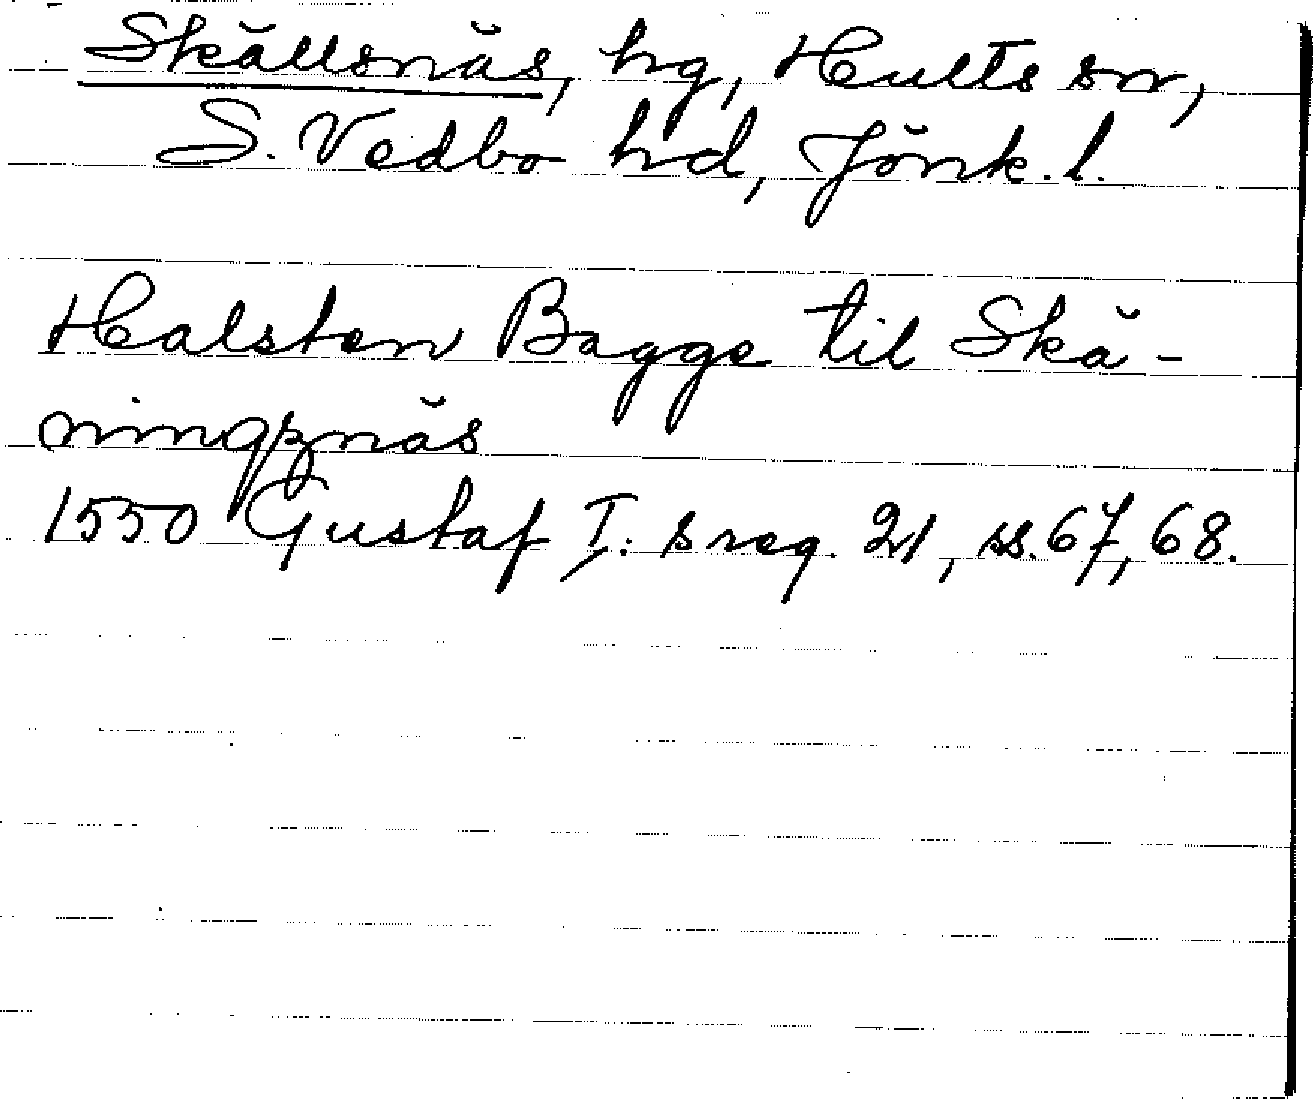 Skällsnäs, hg, Hults sn,
S. Vedbo hd, Jönk. l.
Halsten Bagge til Skä-
ningznäs
1550 Gustaf I:s reg. 21, ss. 67, 68.